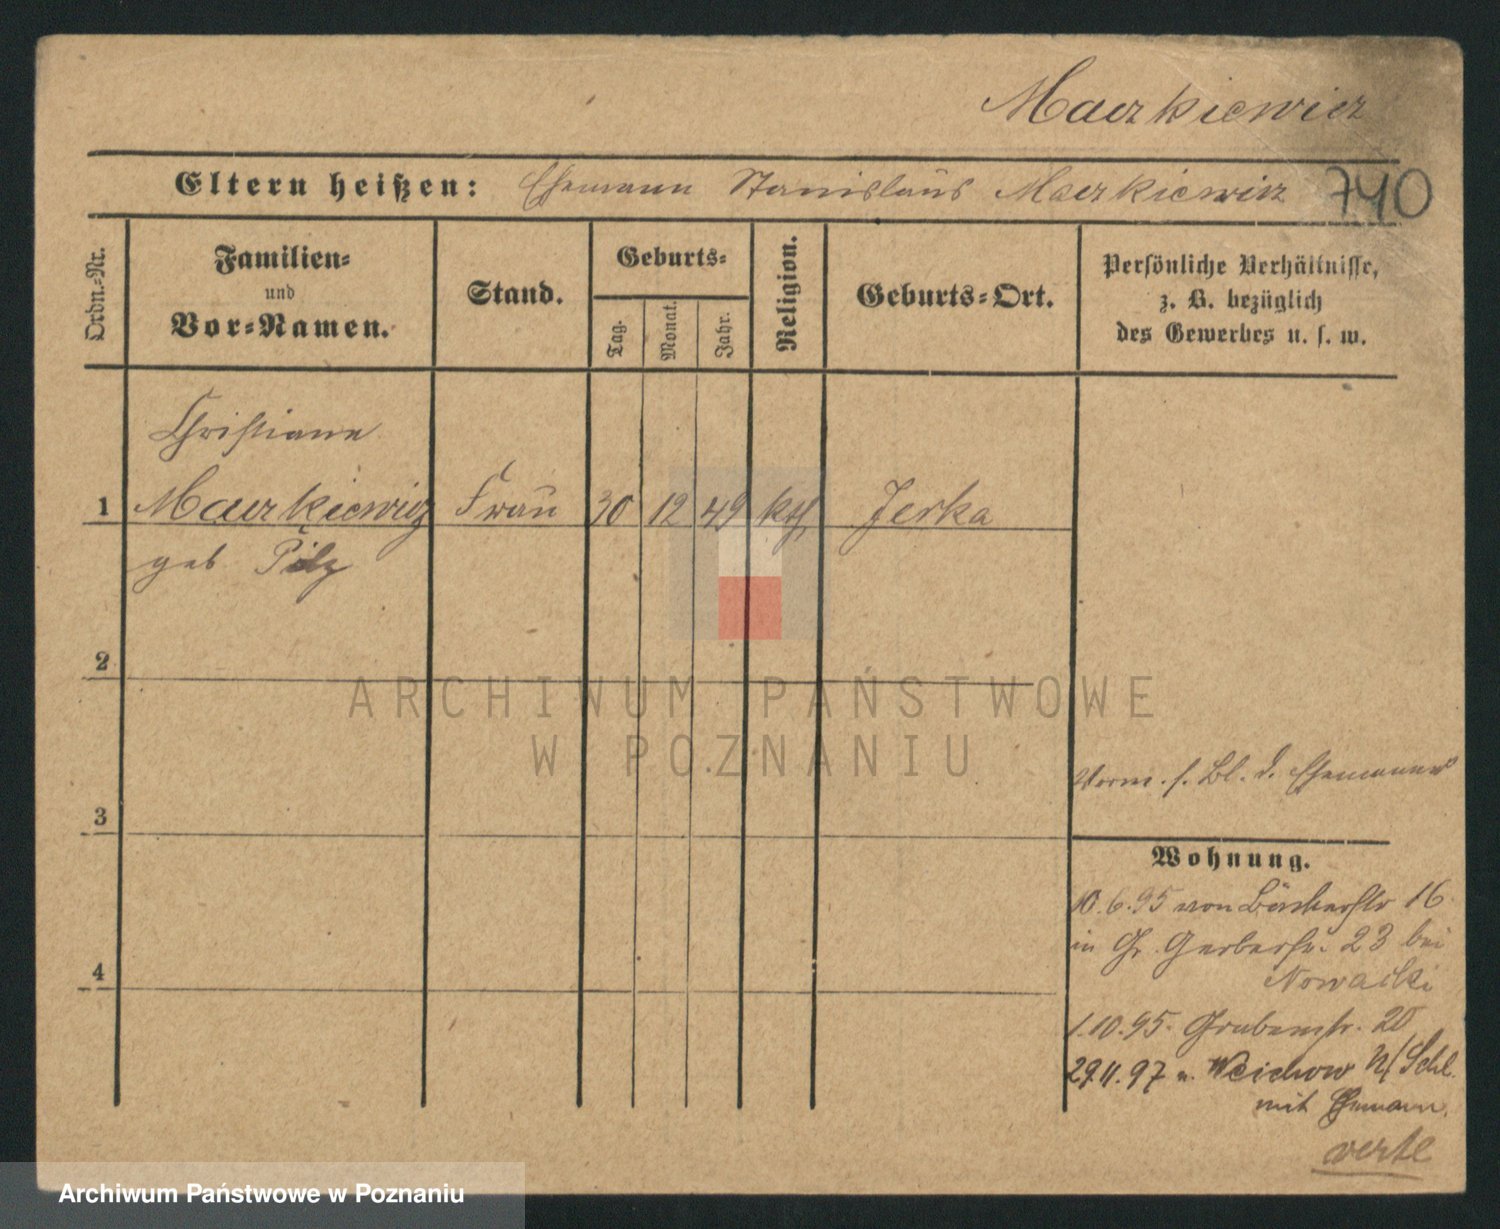 Maczkiewicz
Eltern heißen: Ehemann Stanislaus Maczkiewicz 740
Ordn.-Nr.
Familien-
und
Vor-Namen.
Stand.
Geburts-
Tag.
Monat.
Jahr.
Religion.
Geburts-Ort.
Persönliche Verhältnisse,
z. B. bezüglich
des Gewerbes u. s. w.
Christiane
1 Maczkiewicz Frau 30 12 49 kth Jerka
geb Pilz
2
ARCHIWUM PAŃSTWOWE
W POZNANIU
Vorm. s. Bl. d. Ehemannes
3
Wohnung.
10.6.95 von Bäckerstr 16
in Gr. Gerberstr. 23 bei
Nowacki
4
1.10.95. Grabenstr. 20
29.11.97 n. N/Schl.
mit Ehemann.
verte
Archiwum Państwowe w Poznaniu